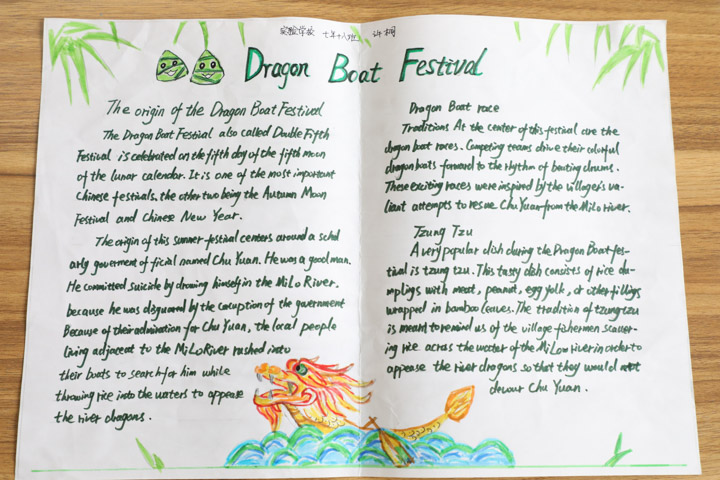 实验学校 七年十八班 许桐
Dragon Boat Festival
The origin of the Dragon Boat Festivul
The Dragon Boat Festival also called Double Fifth
Festival is celebrated on the fifth day of the fifth moon
of the lunar calendar. It is one of the most important
Chinese festivals. the other two being the Autumn Moon
Festival and Chinese New Year.
The origin of this summer festival centers around a schol
arly goverment of ficial named Chu Yuan. He was a good man.
He committed suicide by drowing himself in the MiLo River.
because he was disgused by the coruption of the government
Because of their admination for Chu Yuan, the local people
living adjacent to the MiLo River rushed into
their boats to search for him while
throwing rice into the waters to appease
the river dragons.
Dragon Boat race
Traditions At the center of this festival are the
dragon boat races. Competing teams drive their colorful
dragon boats forward to the rhythm of beating drums.
These exciting races were inspired by the village's va-
liant attempts to resue Chu Yuan from the MiLo river.
Tzung Tzu
A very popular dish during the Dragon Boat fes-
tival is tzung tzu. This tasty dish consists of rice du-
mplings with meat, peanut, egg yolk, or other fillings
wrapped in bamboo leaves. The tradition of tzung tzu
is meant to remind us of the village fishermen scatter-
ing rice acrass the water of the Mi Low river in order to
appease the river dragons so that they would not
devour Chu Yuan.